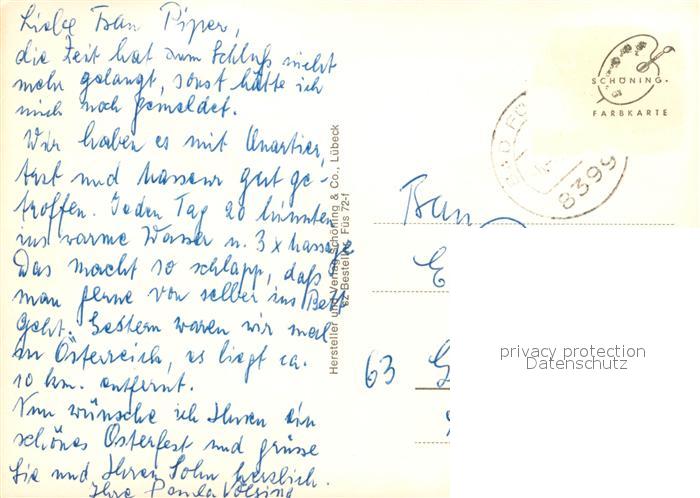 Liebe Frau Piper,
die Zeit hat zum Schluß nicht
mehr gelangt, sonst hätte ich
mich noch gemeldet.
Wir haben es mit Quartier,
Arzt und Masseur gut ge-
troffen. Jeden Tag 20 Minuten
ins warme Wasser u. 3 x Massage
Das macht so schlapp, daß
man gerne von selber ins Bett
geht. Gestern waren wir mal
in Österreich, es liegt ca.
10 km. entfernt.
Nun wünsche ich Ihnen ein
schönes Osterfest und grüsse
Sie und Ihren Sohn herzlich.
Ihre
Hersteller und Verlag Schöning & Co., Lübeck
sz Bestell-Nr. Füs 72-f
SCHÖNING
FARBKARTE
BAD FÜ
8399
Frau
E
63 G
privacy protection
Datenschutz